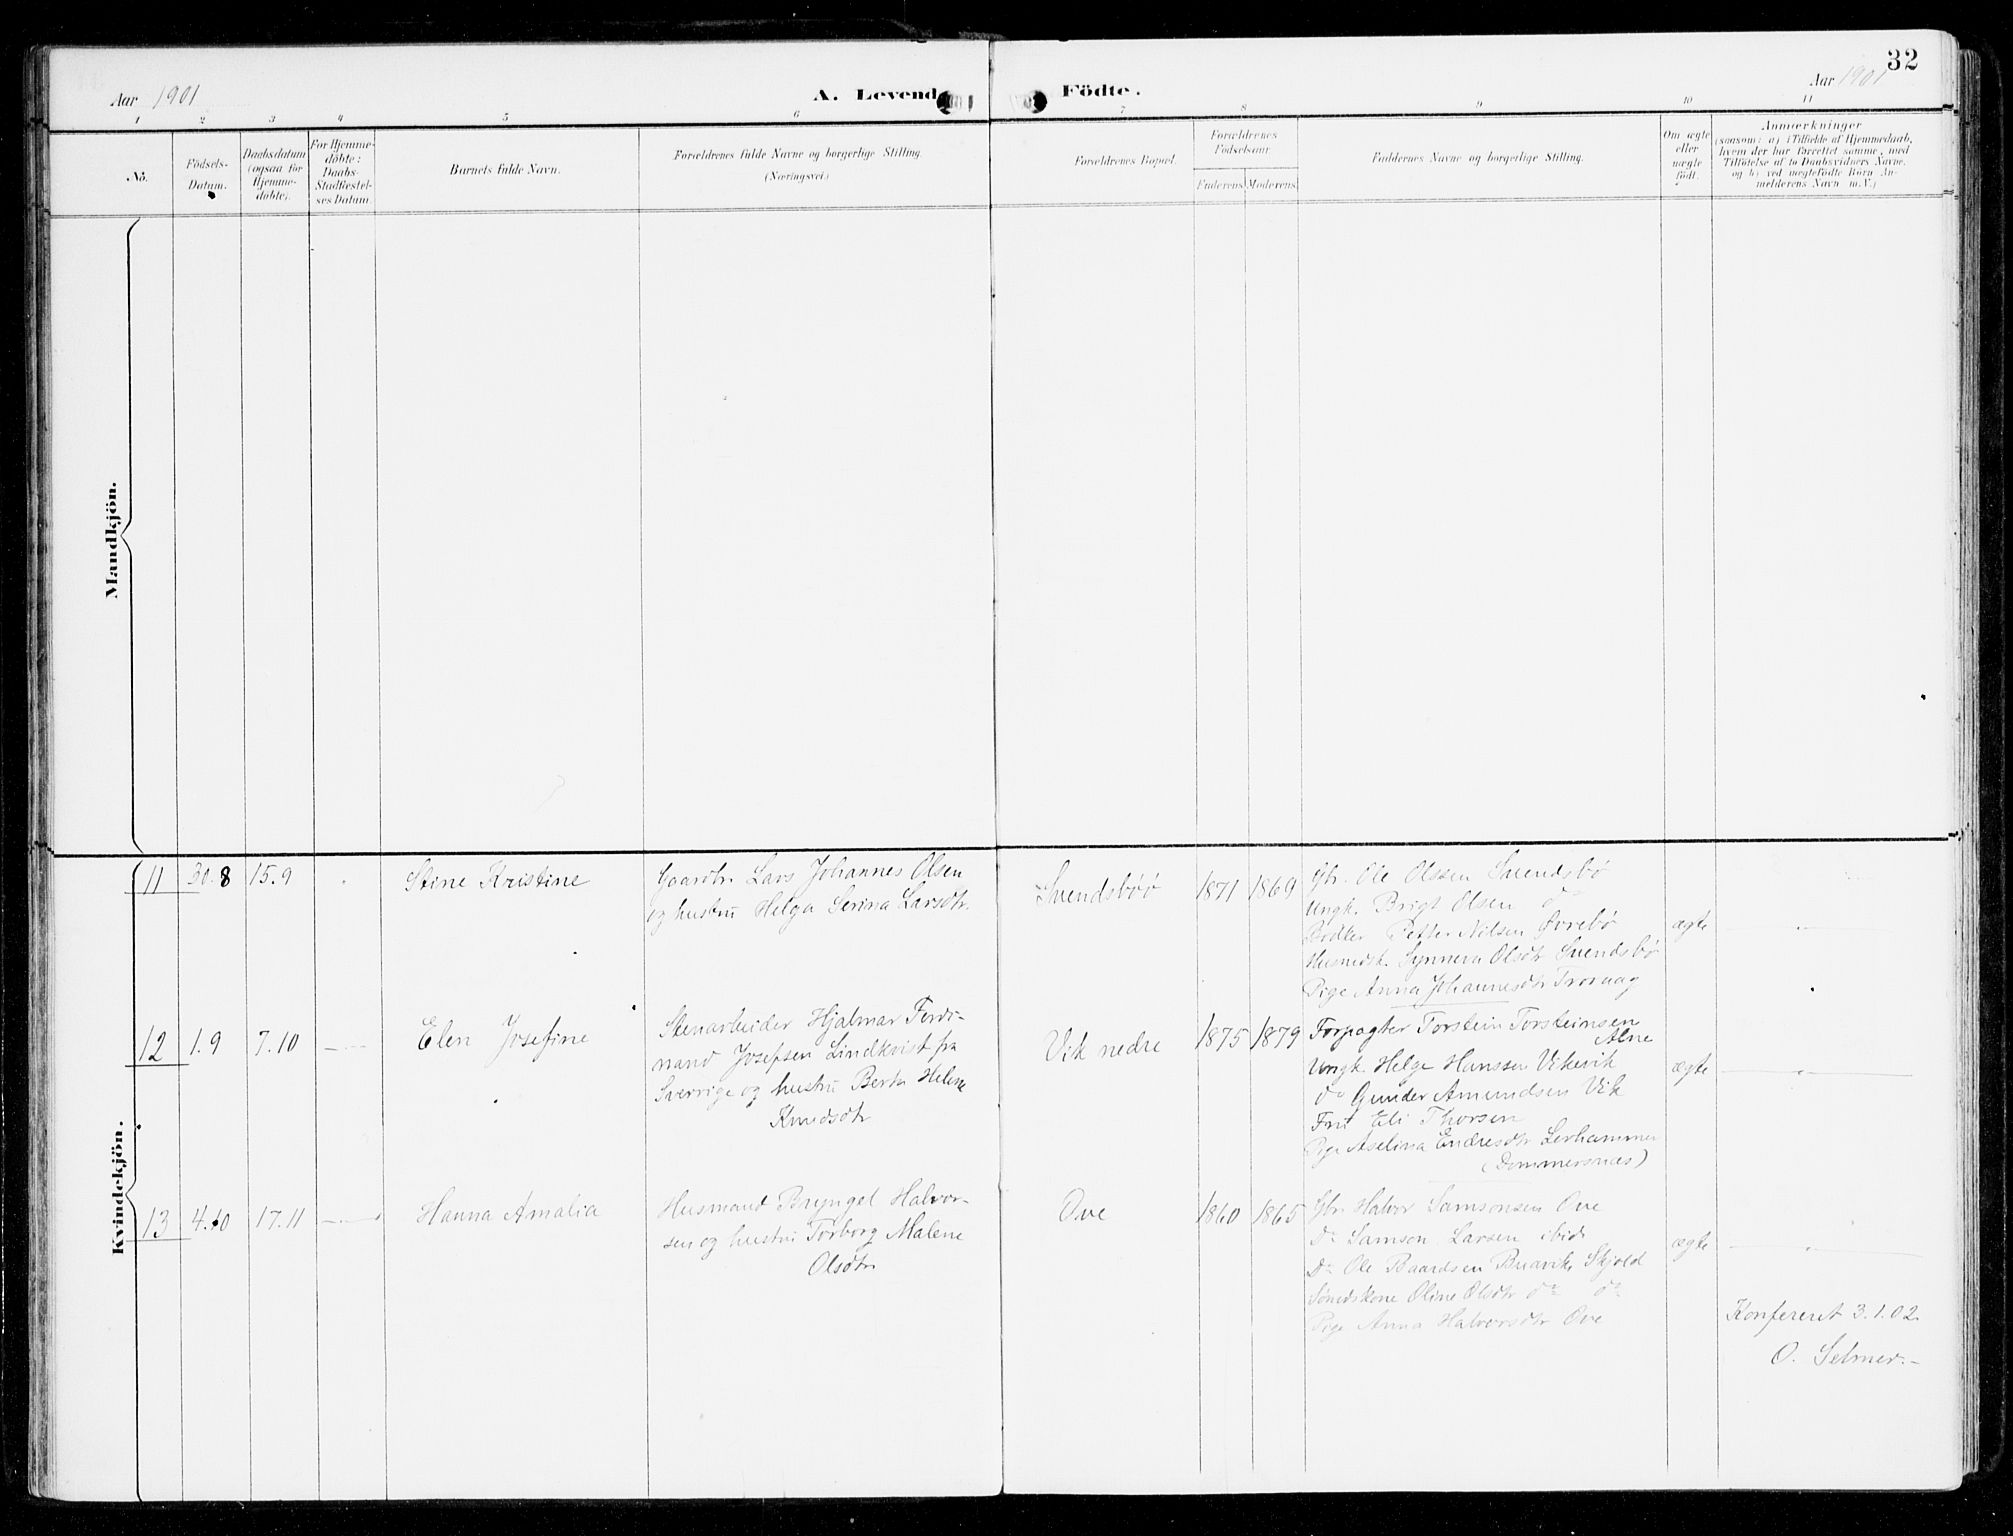 32
Aar 1901
A. Levend
Födte.
Aar 1901
1 2 3 4 5 6 7 8 9 10 11
No.
Födsels-
Datum.
Daabsdatum
(ogsaa for
Hjemme-
döbte).
For Hjemme-
döbte:
Daabs-
Stadfestel-
ses Datum.
Barnets fulde Navn.
Forældrenes fulde Navne og borgerlige Stilling.
(Næringsvei.)
Forældrenes Bopæl.
Forældrenes
Födselsaar.
Faderens. Moderens.
Faddernes Navne og borgerlige Stilling.
Om ægte
eller
uægte
født.
Anmærkninger
(saasom: a) i Tilfælde af Hjemmedaab,
hvem der har forrettet samme, med
Tilföielse af to Daabsvidners Navne.
og b) ved uægtefödte Börn An-
melderens Navn m.V.)
Mandkjön.
Kvindekjön.
11 30.8 15.9
Stine Kristine
Gaardbr. Lars Johannes Olsen
og hustru Helga Serina Larsdtr.
Svendsbøø
1871 1869
Gbr. Ole Olssen Svendsbø
Ungk. Brigt Olsen do
Bødker Petter Nilsen Øvrebø
Husmdsk. Synneva Olsdtr Svendsbø
Pige Anna Johannesdtr Trovaag
ægte
12 1.9 7.10
Elen Josefine
Stenarbeider Hjalmar Ferdi-
nand Josefsen Lindkvist fra
Sverrige og hustru Berta Helene
Knudsdtr
Vik nedre
1875 1879
Forpagter Torstein Torsteinsen
Alne
Ungk. Helge Hanssen Vikevik
do Gunder Amundsen Vik
Fru Eli Thorsen
Pige Aselina Endresdtr Lerhammer
(Dommersnæs)
ægte
13 4.10 17.11
Hanna Amalia
Husmand Bryngel Halvor-
sen og hustru Torborg Malene
Olsdtr
Ove
1860 1865
Gbr. Halvor Samsonsen Ove
Do Samson Larsen ibid
Do Ole Baardsen Buavik Skjold
Sønedskone Oline Olsdtr do do
Pige Anna Halvorsdtr Ove
ægte
Konfereret 3.1.02.
O. Selmer.